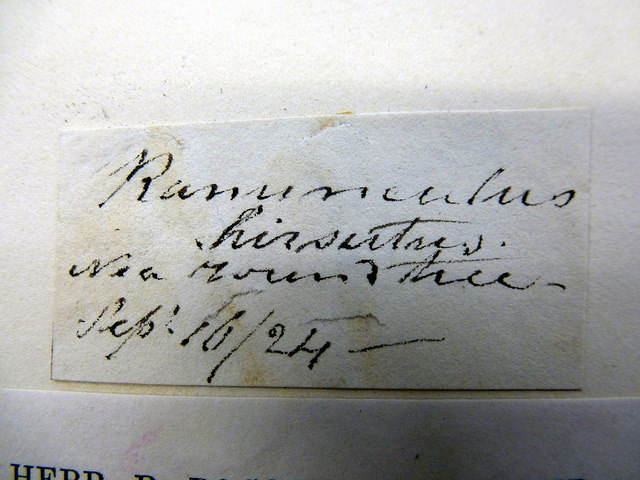 Ranunculus
hirsutus.
Nea round tree -
Sept 16/24 —
HERB